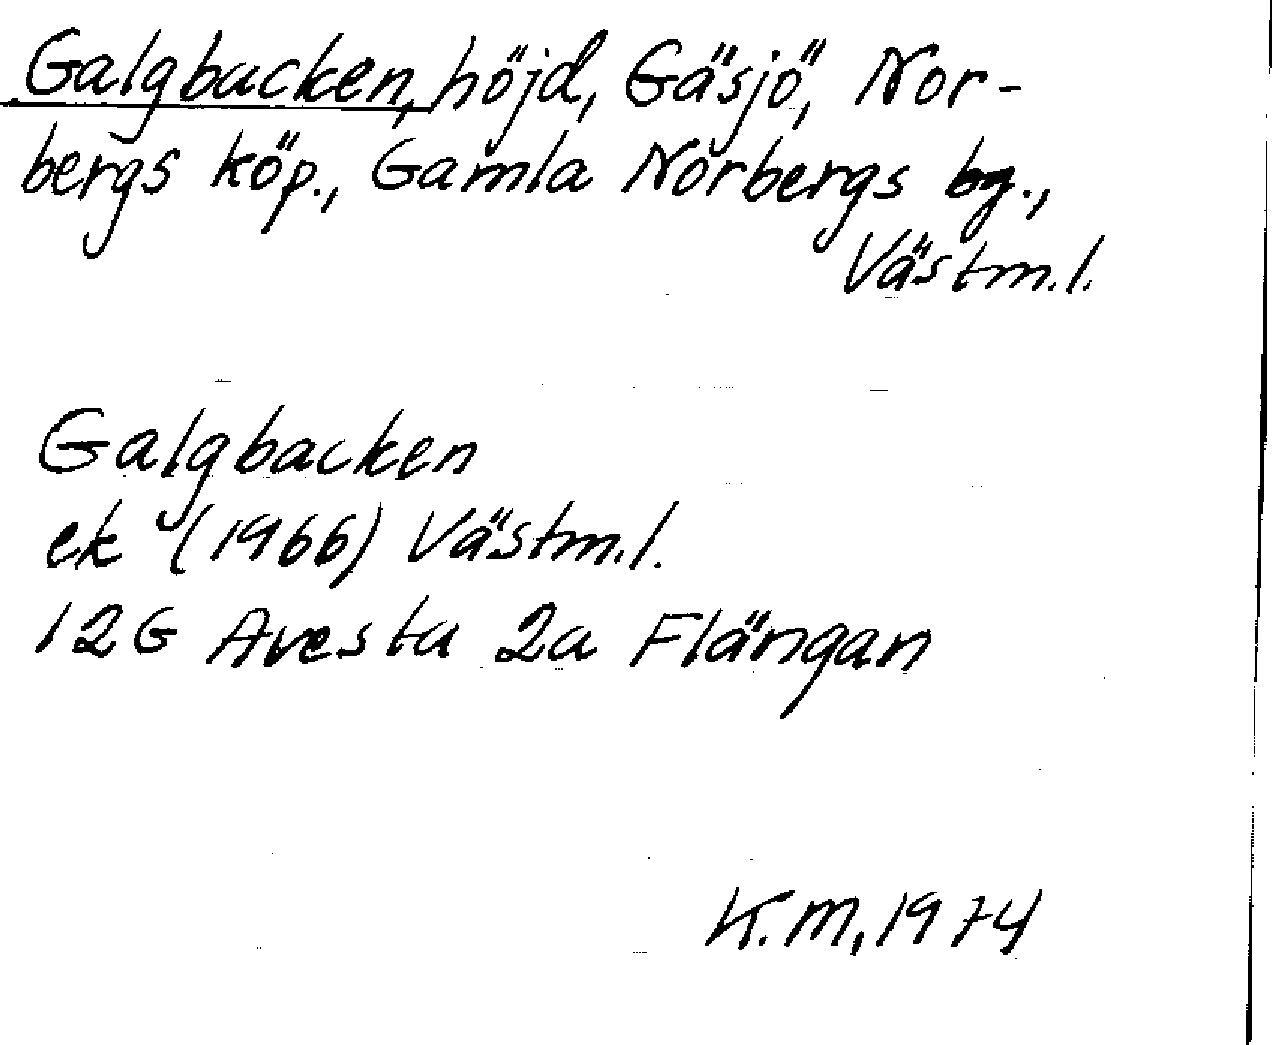 Galgbacken, höjd, Gäsjö, Nor-
bergs köp., Gamla Norbergs bg.,
Västm.l.
Galgbacken
ek (1966) Västm.l.
12G Avesta 2a Flängan
K.M, 1974